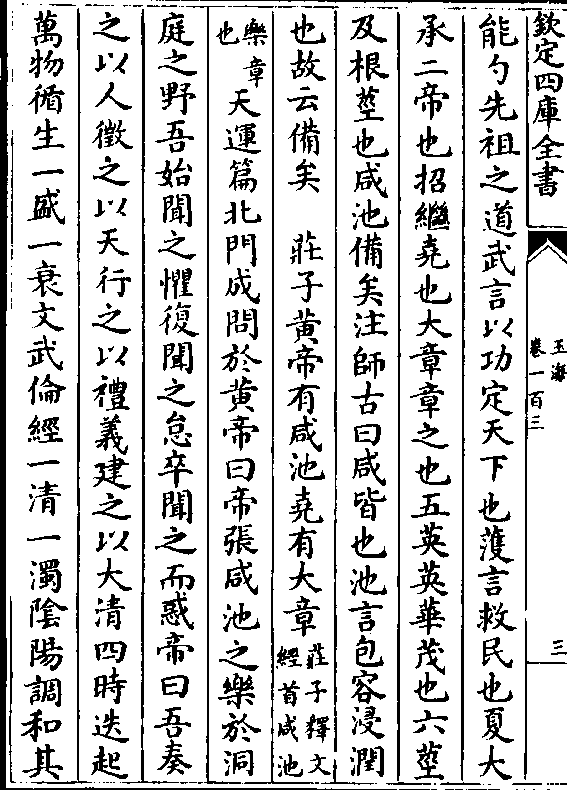 欽定四庫全書
玉海
卷一百三
三
能勺先祖之道武言以功定天下也濩言救民也夏大
承二帝也招繼堯也大章章之也五英英華茂也六莖
及根莖也咸池備矣注師古曰咸皆也池言包容浸潤
也故云備矣　莊子黃帝有咸池堯有大章莊子釋文經首咸池
樂章也天運篇北門成問於黃帝曰帝張咸池之樂於洞
庭之野吾始聞之懼復聞之怠卒聞之而惑帝曰吾奏
之以人徵之以天行之以禮義建之以大清四時迭起
萬物循生一盛一衰文武倫經一清一濁陰陽調和其